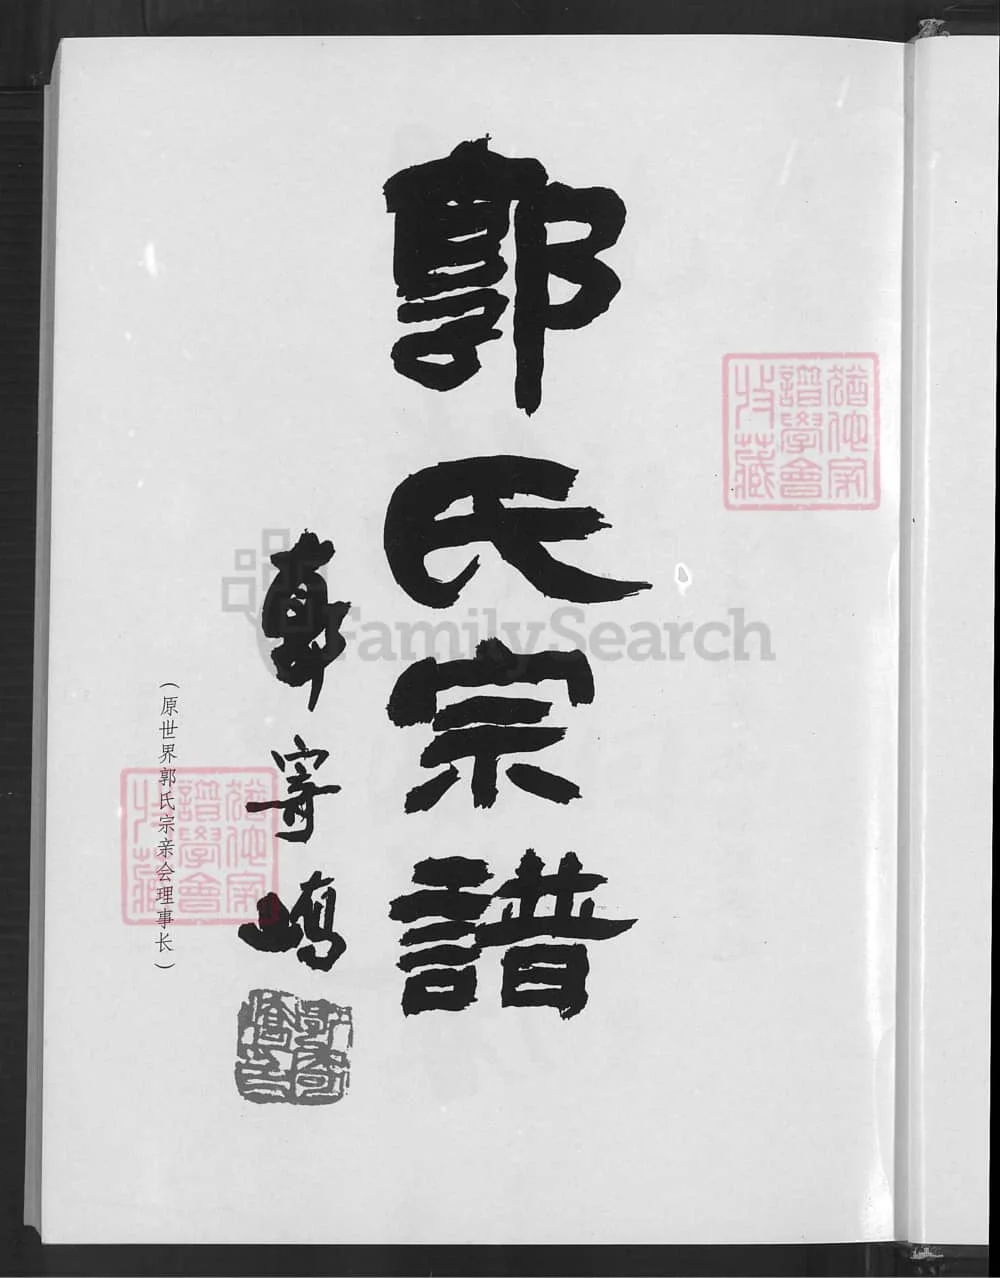 郭氏宗譜
郭寄嶠
（原世界郭氏宗亲会理事长）
猶他家
譜學會
收藏
猶他家
譜學會
收藏
FamilySearch